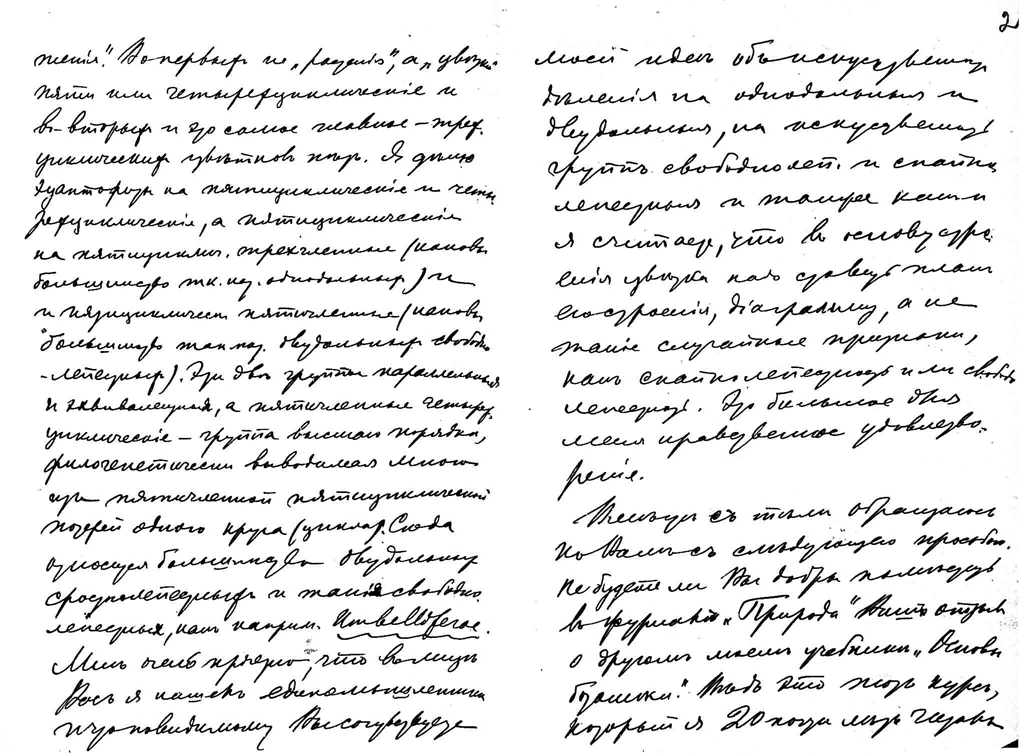 женія". Во первыхъ не „растенія", а „цвѣтки"
пяти или четырехциклическіе и
во-вторыхъ и это самое главное – трех
циклическихъ цвѣтковъ нѣтъ. Я дѣлю
на пятициклическіе и четы
рехциклическіе, а пятициклическіе
на пятициклич. трехчленные (каковы
большинство т.н. однодольныхъ) и
и пятициклическ. пятичленные (каковы
большинство такъ наз. двудольныхъ свободно
-лепестныхъ). Эти двѣ группы параллельныя
и эквивалентныя, а пятичленные четырех
циклическіе – группа высшаго порядка,
филогенетически выводимая мною
изъ пятичленной пятициклической
потерей одного круга (цикла). Сюда
относится большинство двудольныхъ
сростнолепестныхъ и такія свободно
лепестныя, какъ наприм. Umbelliferae.
Мнѣ очень пріятно, что въ лицѣ
Васъ я нашелъ единомышленника
и что повидимому Вы сочувствуете
2
моей идеѣ объ искусственномъ
дѣленіи на однодольныя и
двудольныя, на искусственность
группъ свободнолеп. и спайно
лепестныя и также какъ и
я считаете, что въ основу стро
енія цвѣтка надо ставить планъ
построенія, діаграмму, а не
такіе случайные признаки,
какъ спайнолепестность или свободно
лепестность. Это большое для
меня нравственное удовлетво-
реніе.
Вмѣстѣ съ тѣмъ обращаюсь
къ Вамъ съ слѣдующею просьбою.
Не будете ли Вы добры помѣстить
въ журналѣ „Природа" Вашъ отзывъ
о другомъ моемъ учебникѣ „Основы
ботаники". Вѣдь это тотъ курсъ,
который я 20 лѣтъ читалъ